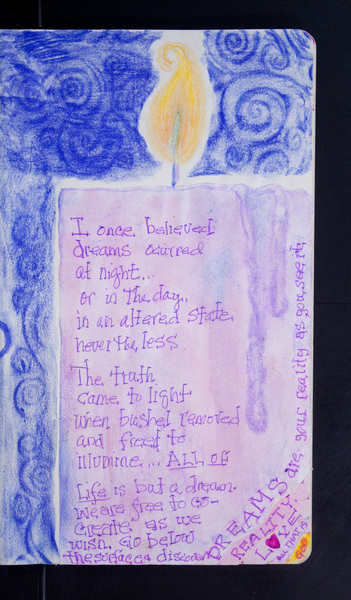 I once believed
dreams ocurred
at night...
or in the day,
in an altered state,
never the less
The truth
came to light
when bushel removed
and freed to
illumine.... ALL OF
Life is but a dream.
We are free to co-
create as we
wish. Go below
the surface & discover
DREAMS are your reality as you see it,
REALITY.
LOVE!
ALL THAT IS
GOD